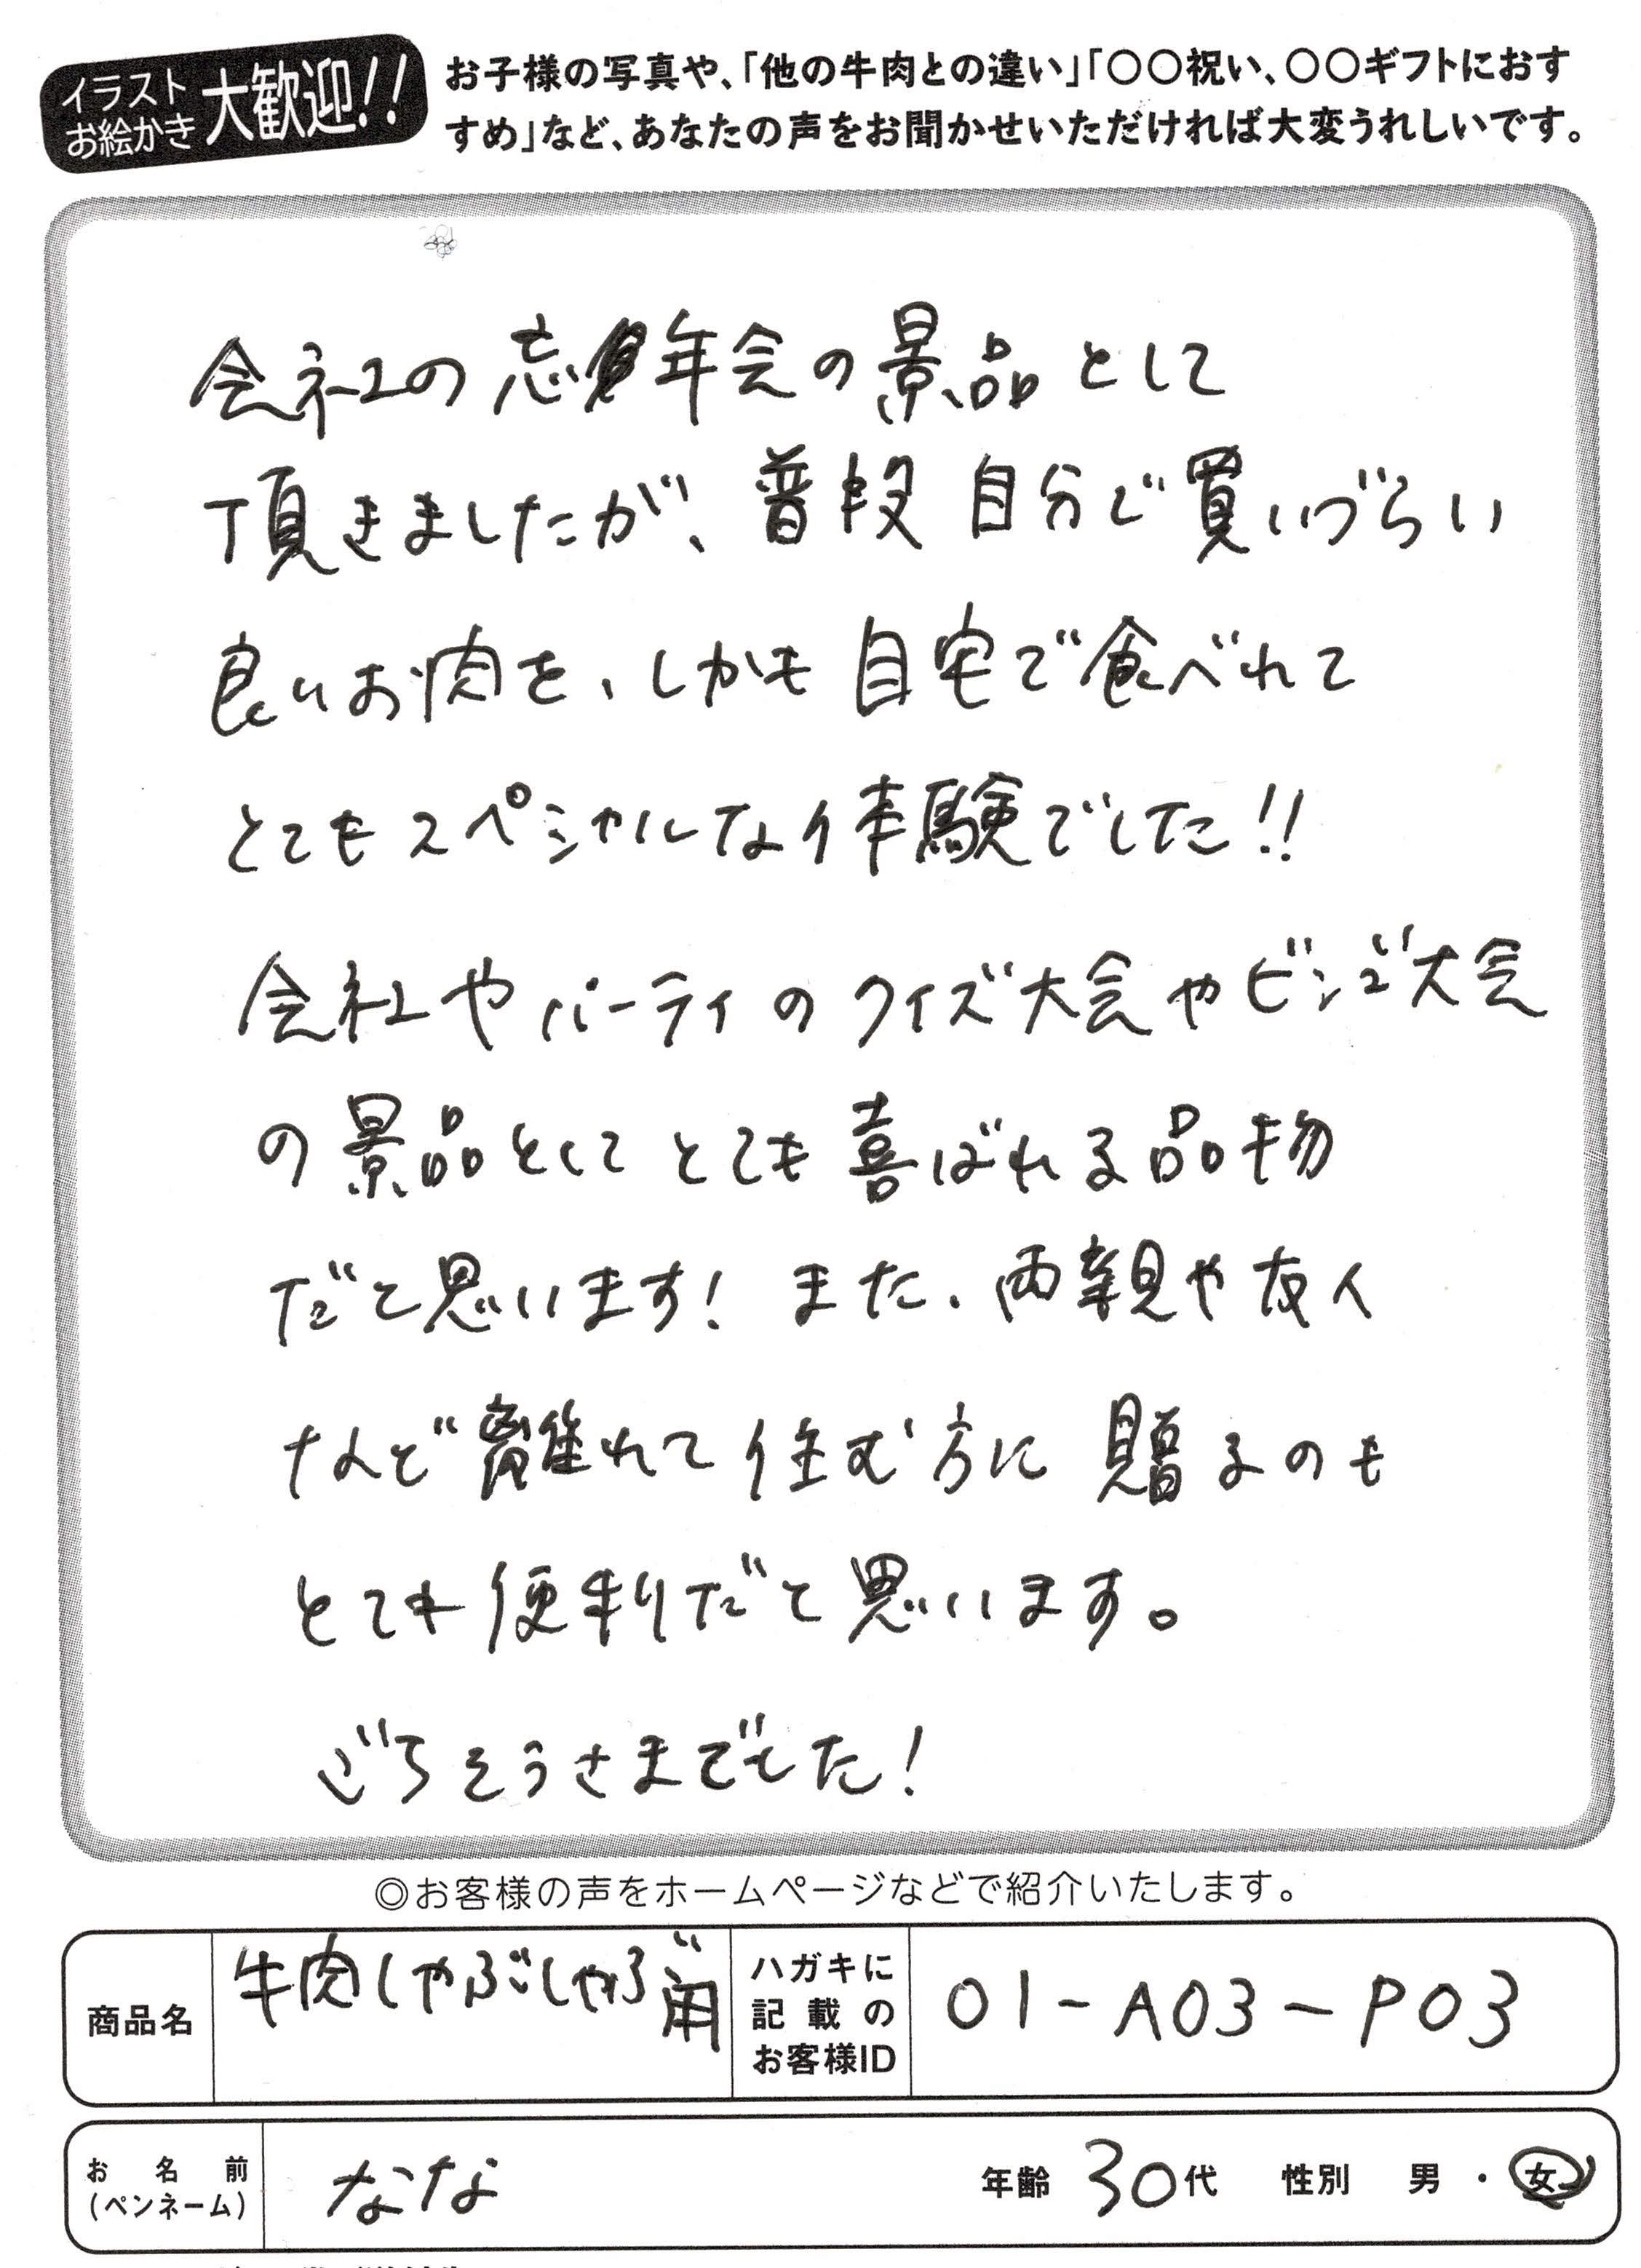 イラスト
お絵かき
大歓迎!!
お子様の写真や、「他の牛肉との違い」「〇〇祝い、〇〇ギフトにおす
すめ」など、あなたの声をお聞かせいただければ大変うれしいです。
会社の忘年会の景品として
頂きましたが、普段自分で買いづらい
良いお肉を、しかも自宅で食べれて
とてもスペシャルな体験でした!!
会社やパーティのクイズ大会やビンゴ大会
の景品としてとても喜ばれる品物
だと思います! また、両親や友人
など離れて住む方に贈るのも
とても便利だと思います。
ごちそうさまでした!
◎お客様の声をホームページなどで紹介いたします。
商品名 牛肉しゃぶしゃぶ用
ハガキに
記載の
お客様ID
01-A03-P03
お名前
(ペンネーム)
なな
年齢 30代 性別 男・女